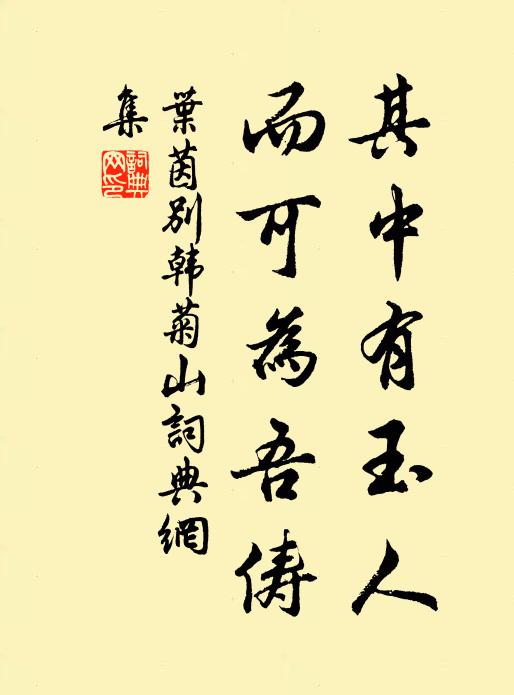 其中有玉人
而可為吾儔
葉茵別韩菊山詞典網
集
詞典
网印